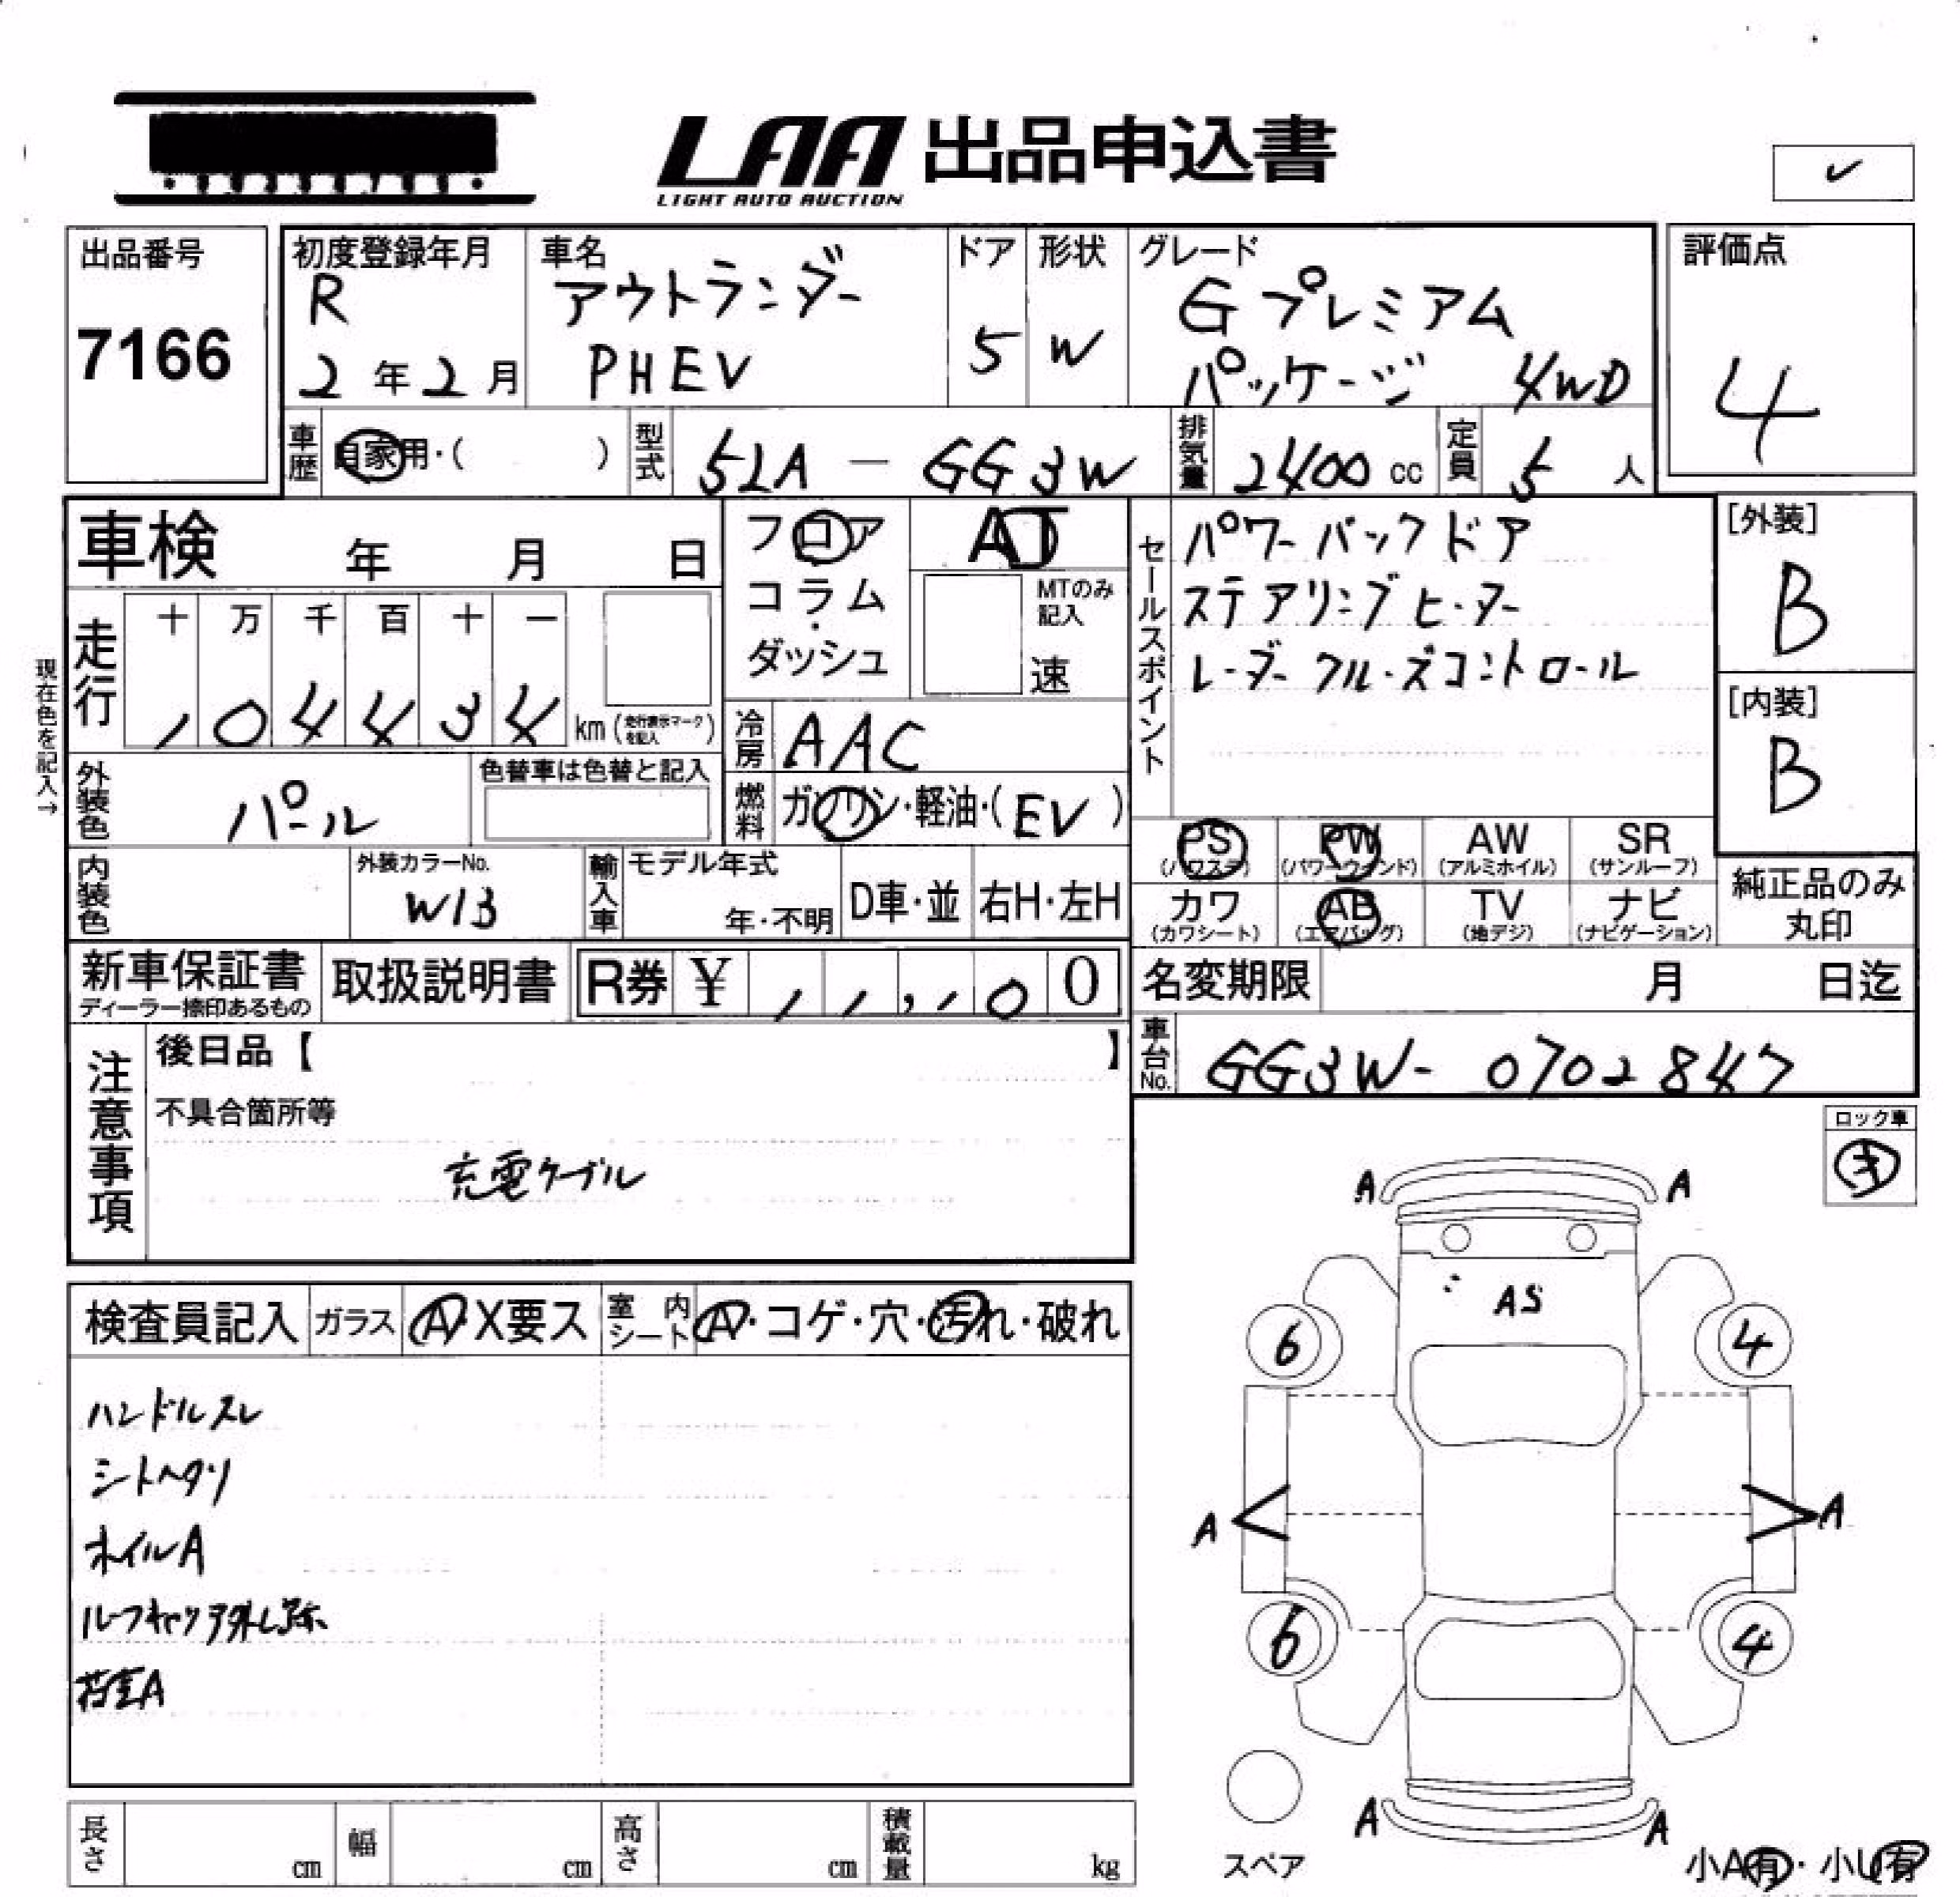 LAA 出品申込書
LIGHT AUTO AUCTION
出品番号
7166
初度登録年月
R
2年2月
車名
アウトランダー
PHEV
ドア
5
形状
W
グレード
Gプレミアム
パッケージ 4WD
評価点
4
車歴
自家用・( )
型式
5LA － GG3W
排気量
2400 cc
定員
5 人
車検 年 月 日
フロア
コラム
・
ダッシュ
AT
MTのみ
記入
速
セールスポイント
パワーバックドア
ステアリングヒーター
レーダークルーズコントロール
[外装]
B
[内装]
B
現在色を記入→
走行
十 万 千 百 十 一
1 0 4 4 3 4 km (走行表示マークを記入)
冷房
AAC
外装色
パール
色替車は色替と記入
燃料
ガソリン・軽油・(EV)
内装色
外装カラーNo.
W13
輸入車
モデル年式
年・不明
D車・並
右H・左H
PS
(パワステ)
PW
(パワーウィンド)
AW
(アルミホイル)
SR
(サンルーフ)
カワ
(カワシート)
AB
(エアバッグ)
TV
(地デジ)
ナビ
(ナビゲーション)
純正品のみ
丸印
新車保証書
ディーラー捺印あるもの
取扱説明書
R券 ¥ 1 1, 1 0 0
名変期限 月 日迄
車台No.
GG3W- 0702847
注意事項
後日品【 】
不具合箇所等
充電ケーブル
ロック車
検査員記入
ガラス
A X要ス
室内シート
A・コゲ・穴・汚れ・破れ
ハンドルスレ
シートヘタリ
ホイルA
ルーフキャリア外し跡
荷室A
A A
AS
6 4
A A
6 4
A A
スペア
小A有・小U有
長さ cm
幅 cm
高さ cm
積載量 kg